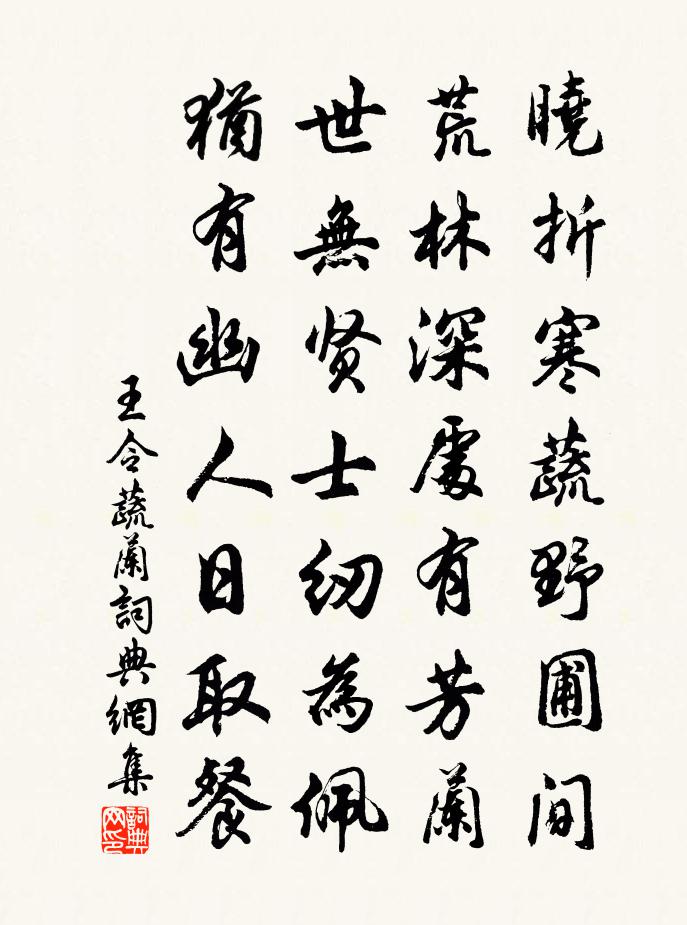 曉折寒蔬野圃間
荒林深處有芳蘭
世無贤士紉為佩
猶有幽人日取餐
王令蔬蘭詞典網集
詞典网印